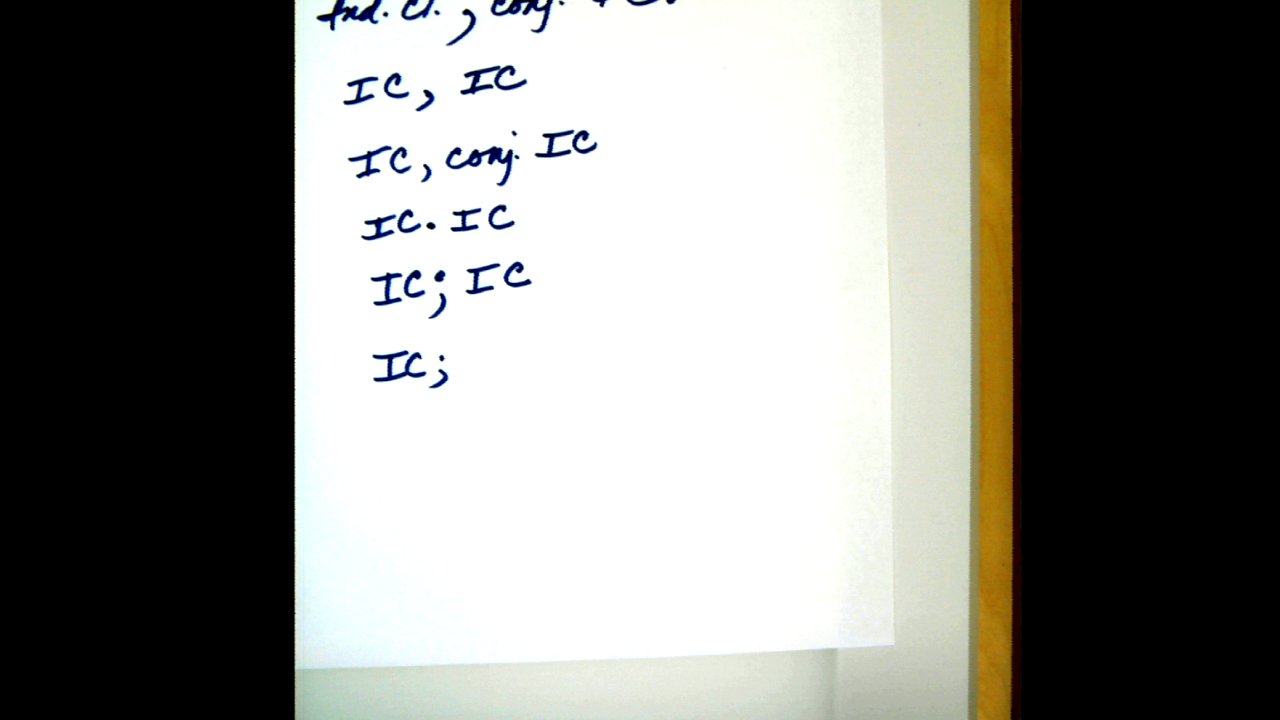 Ind. Cl. , conj.
IC, IC
IC, conj. IC
IC. IC
IC; IC
IC;